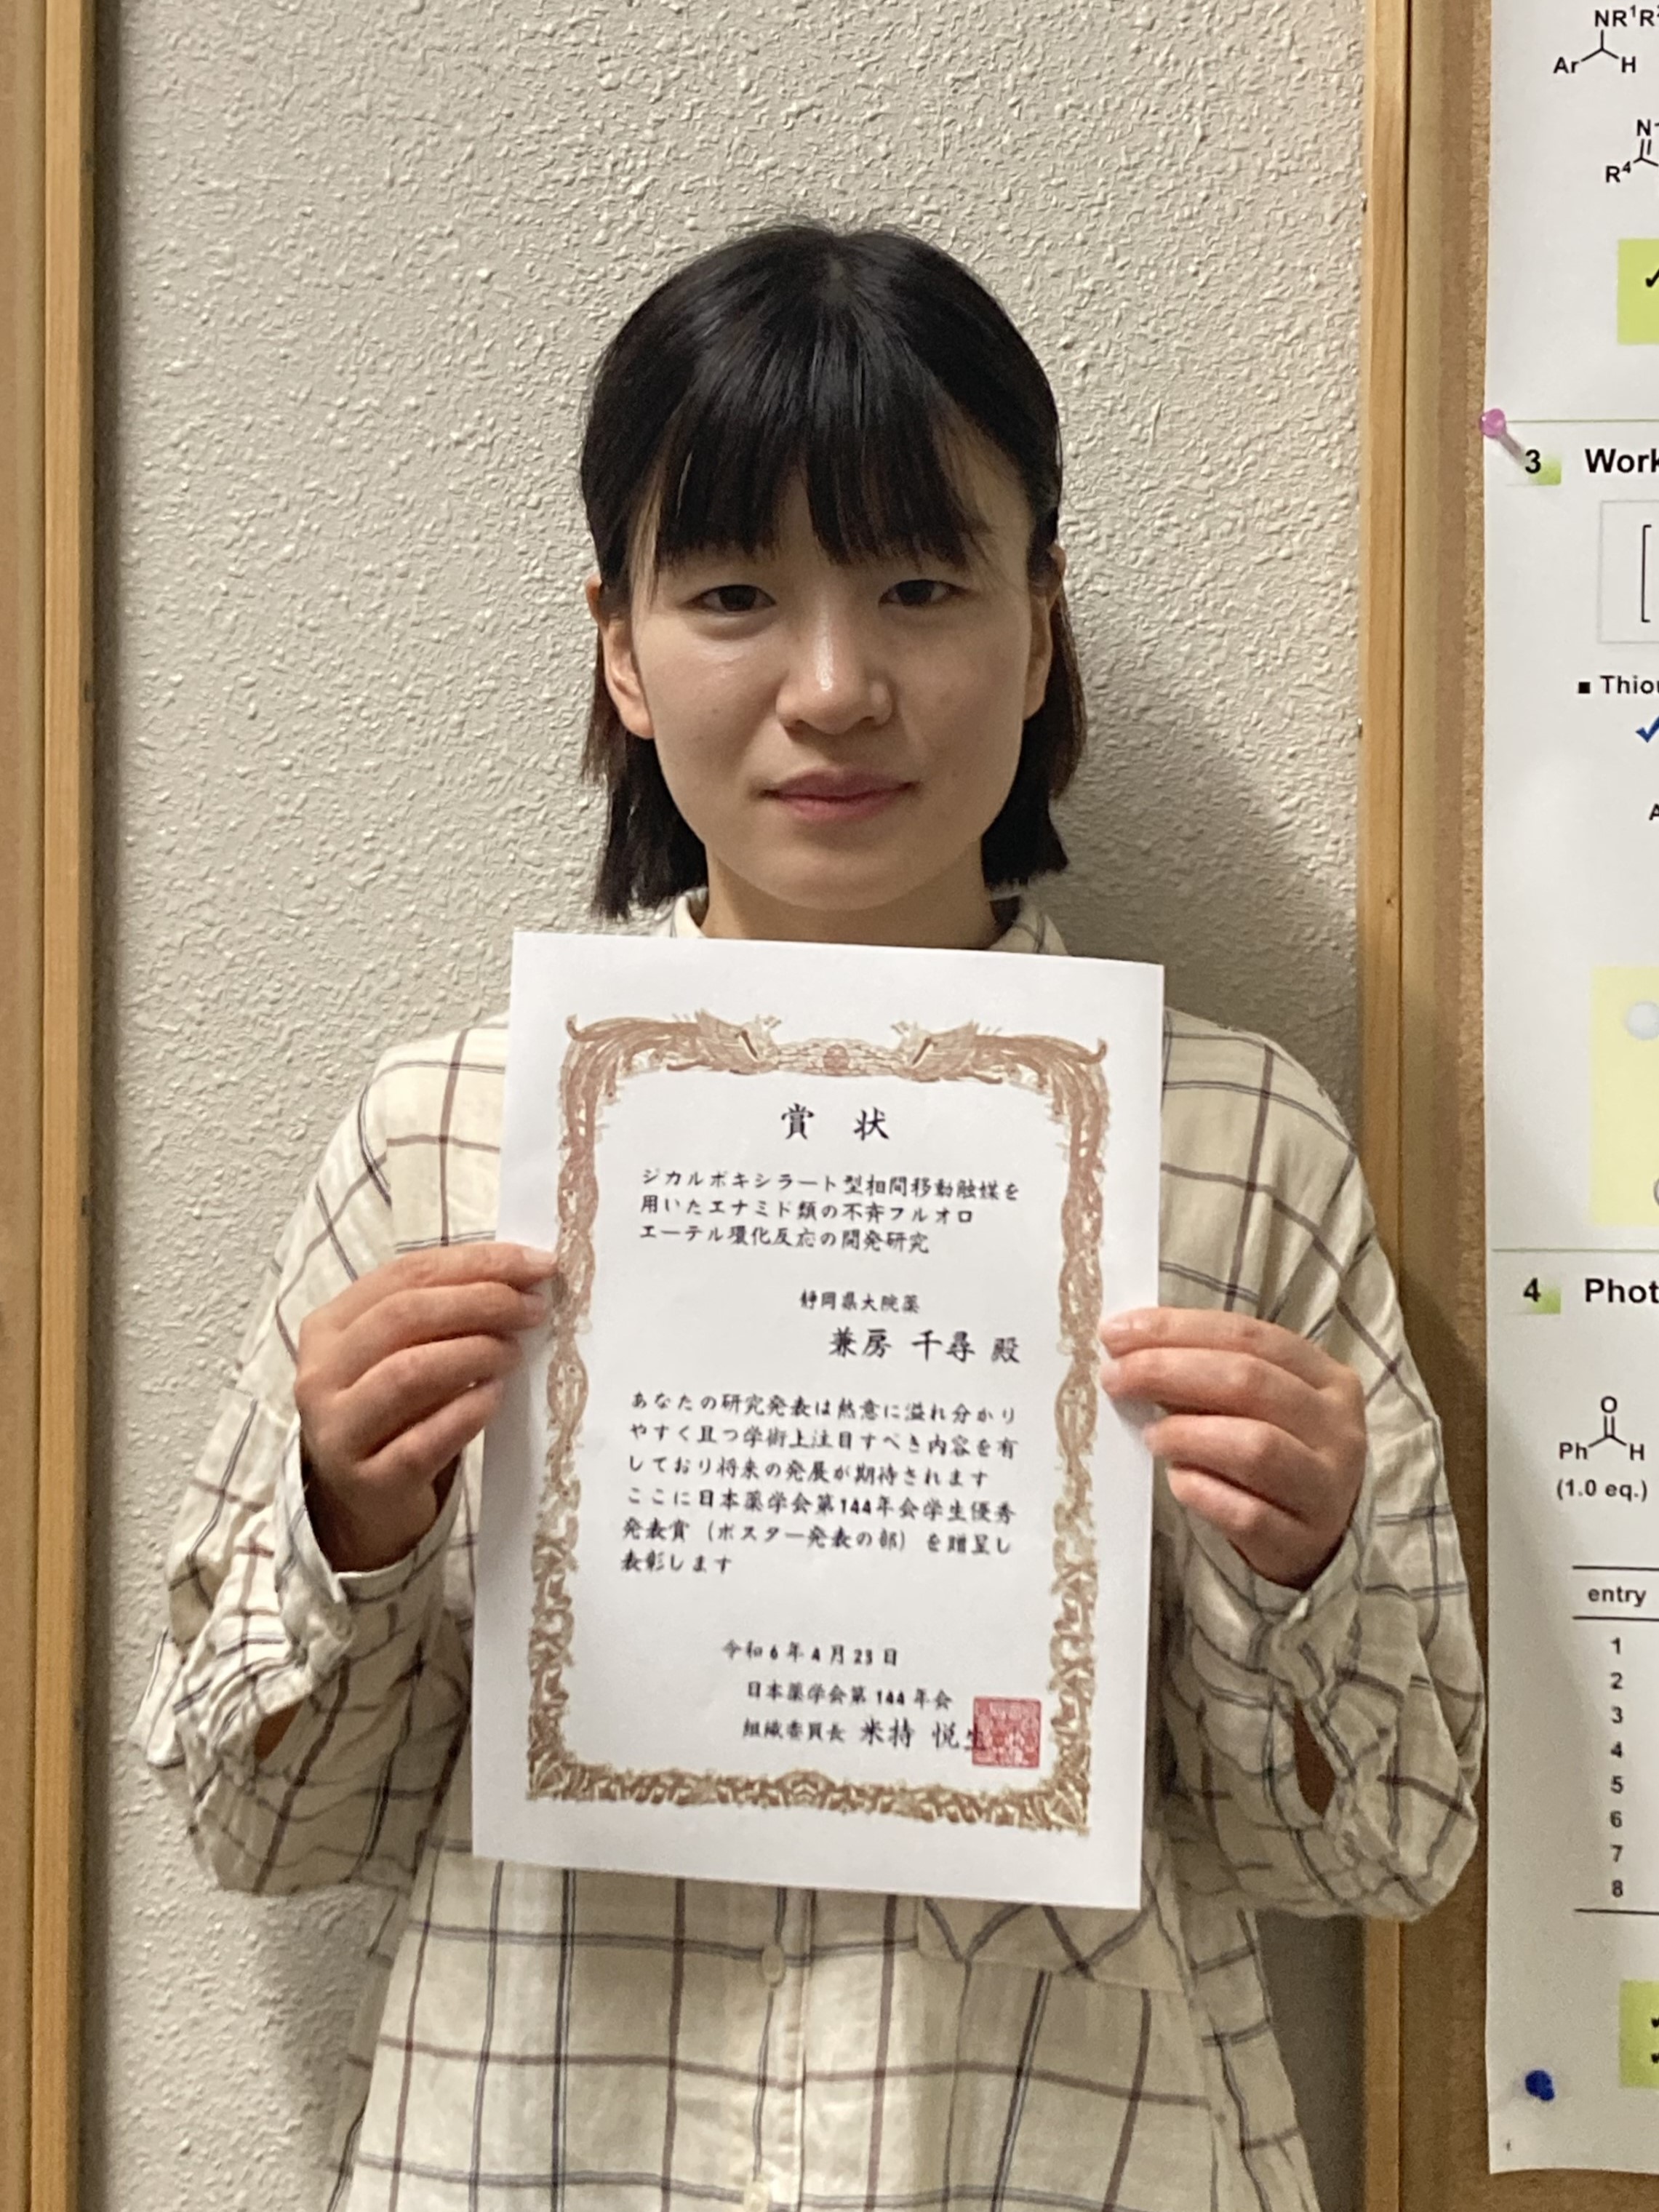 賞 状
ジカルボキシラート型相間移動触媒を
用いたエナミド類の不斉フルオロ
エーテル環化反応の開発研究
静岡県大院薬
兼房 千尋 殿
あなたの研究発表は熱意に溢れ分かり
やすく且つ学術上注目すべき内容を有
しており将来の発展が期待されます
ここに日本薬学会第144年会学生優秀
発表賞（ポスター発表の部）を贈呈し
表彰します
令和6年4月23日
日本薬学会第144年会
組織委員長 米持 悦生
NR¹R
Ar
H
N
R⁴
3
■
4
Ph
O
H
(1.0 eq.)
entry
1
2
3
4
5
6
7
8